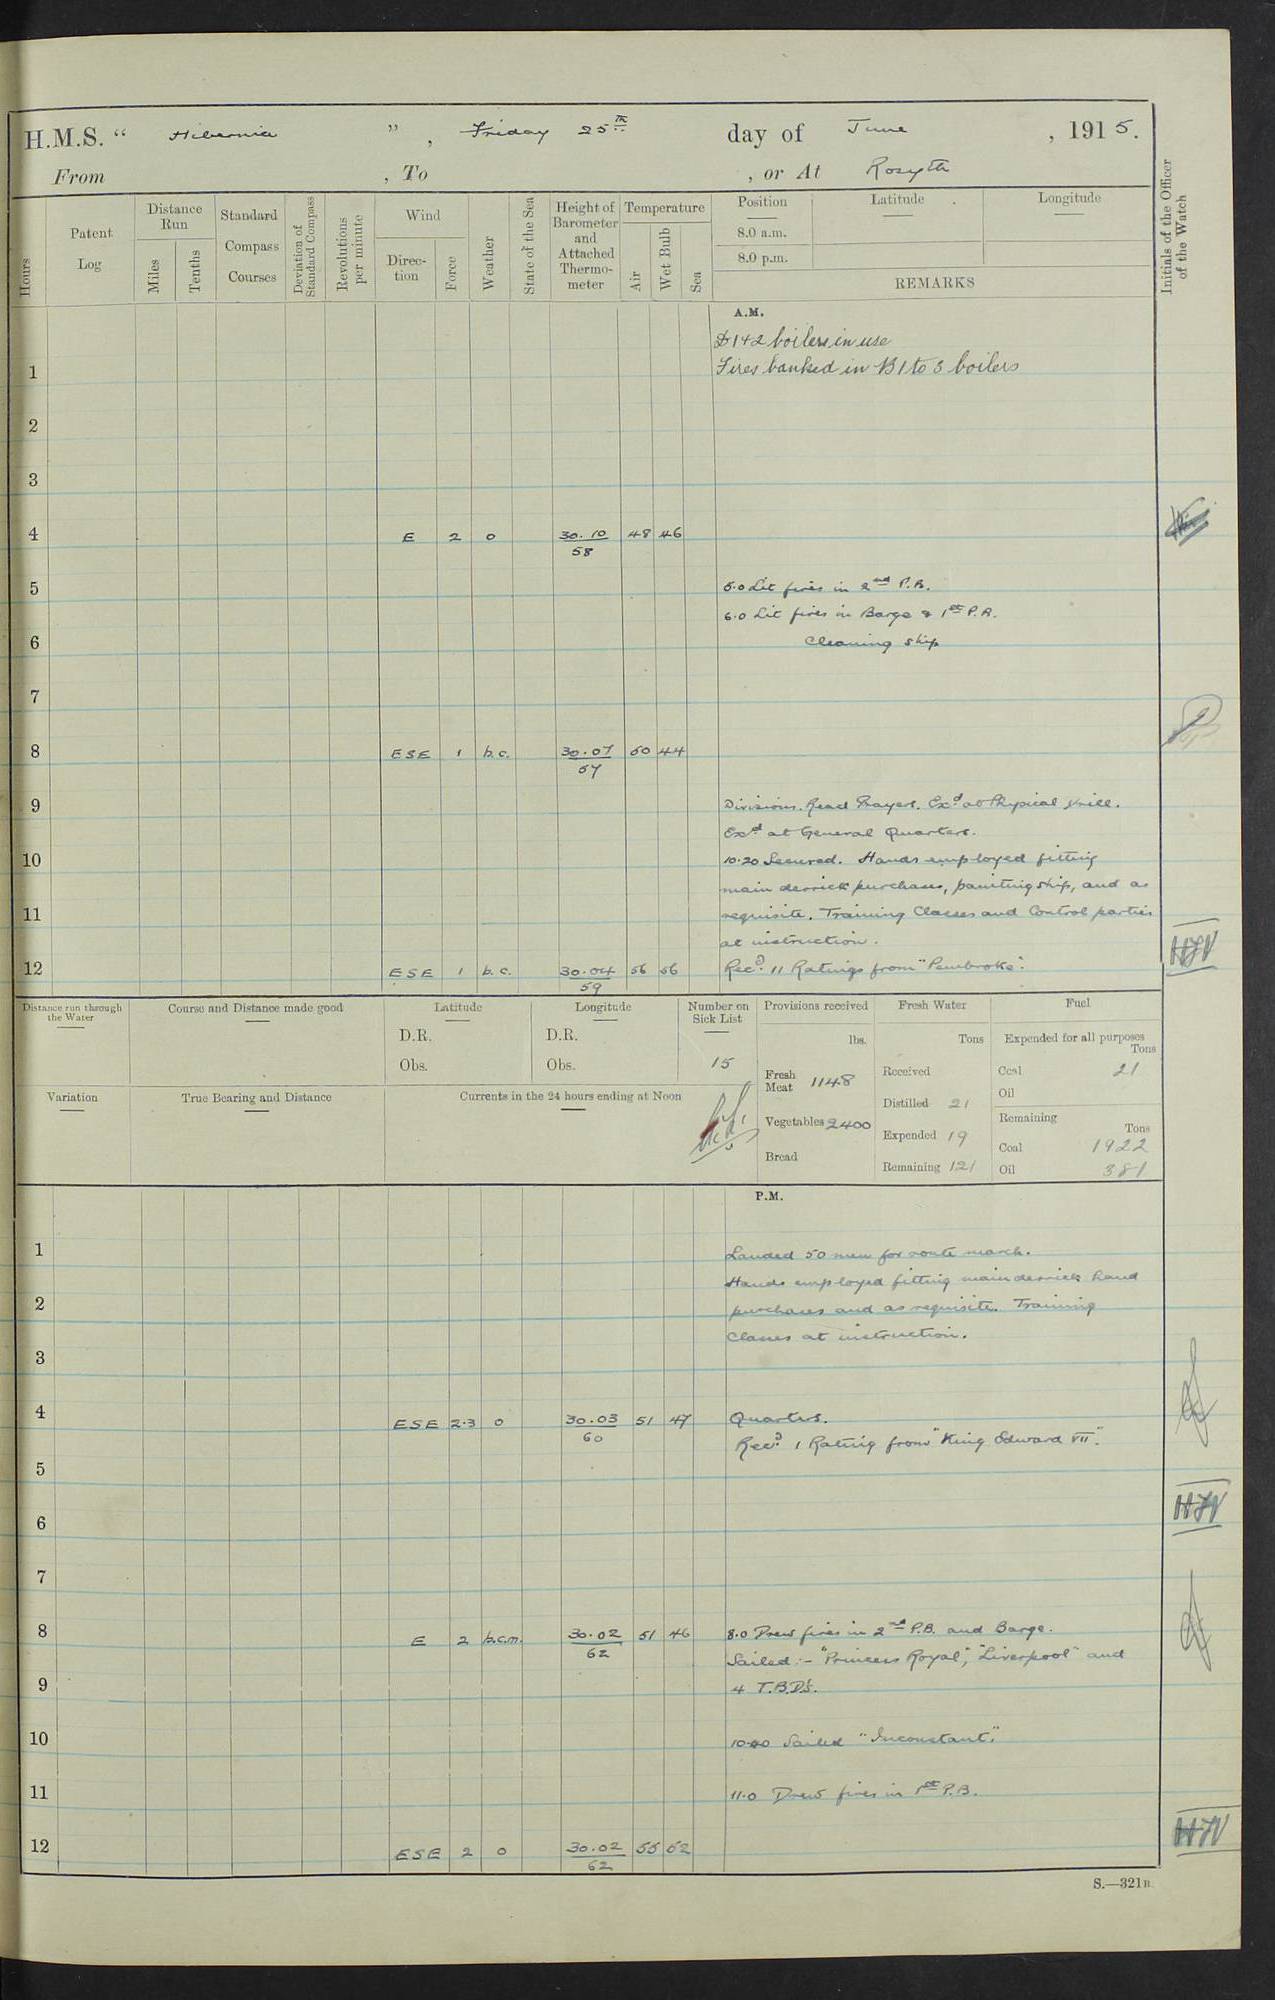 H.M.S. " Hibernia ", Friday 25th. day of June, 1915.
From , To , or At Rosyth
Hours
Patent Log
Distance Run
Miles
Tenths
Standard Compass Courses
Deviation of Standard Compass
Revolutions per minute
Wind
Direction
Force
Weather
State of the Sea
Height of Barometer and Attached Thermometer
Temperature
Air
Wet Bulb
Sea
Position
8.0 a.m.
8.0 p.m.
Latitude
Longitude
REMARKS
Initials of the Officer of the Watch
A.M.
boilers in use
1 Fires banked in B 1 to 3 boilers
2
3
4 E 2 o 30.10 48 46
58
5 5.0 Lit fires in 2nd P.B.
6.0 Lit fires in Barge & 1st P.B.
6 Cleaning ship
7
8 ESE 1 b.c. 30.07 50 44
57
9 Divisions. Read Prayers. Exd at Physical drill.
Exd at General Quarters.
10 10.20 Secured. Hands employed fitting
main derrick purchases, painting ship, and as
11 requisite. Training Classes and Control parties
at instruction.
12 ESE 1 b.c. 30.04 56 56 Recd. 11 Ratings from "Pembroke".
59
HJV
Distance run through the Water
Course and Distance made good
Latitude
D.R.
Obs.
Longitude
D.R.
Obs.
Number on Sick List
15
Provisions received
lbs.
Fresh Meat 1148
Vegetables 2400
Bread
Fresh Water
Tons
Received
Distilled 21
Expended 19
Remaining 121
Fuel
Expended for all purposes
Tons
Coal 21
Oil
Remaining
Tons
Coal 1922
Oil 381
Variation
True Bearing and Distance
Currents in the 24 hours ending at Noon
P.M.
1 Landed 50 men for route march.
Hands employed fitting main derrick hand
2 purchases and as requisite. Training
Classes at instruction.
3
4 ESE 2.3 o 30.03 51 47 Quarters.
60
Recd. 1 Rating from "King Edward VII".
5
6 HJV
7
8 E 2 b.c.m. 30.02 51 46 8.0 Drew fires in 2nd P.B. and Barge.
62
Sailed:- "Princess Royal", "Liverpool" and
9 4 T.B.Ds.
10 Sailed "Inconstant".
11 11.0 Drew fires in 1st P.B.
12 ESE 2 o 30.02 55 52
62
HJV
S.—321B